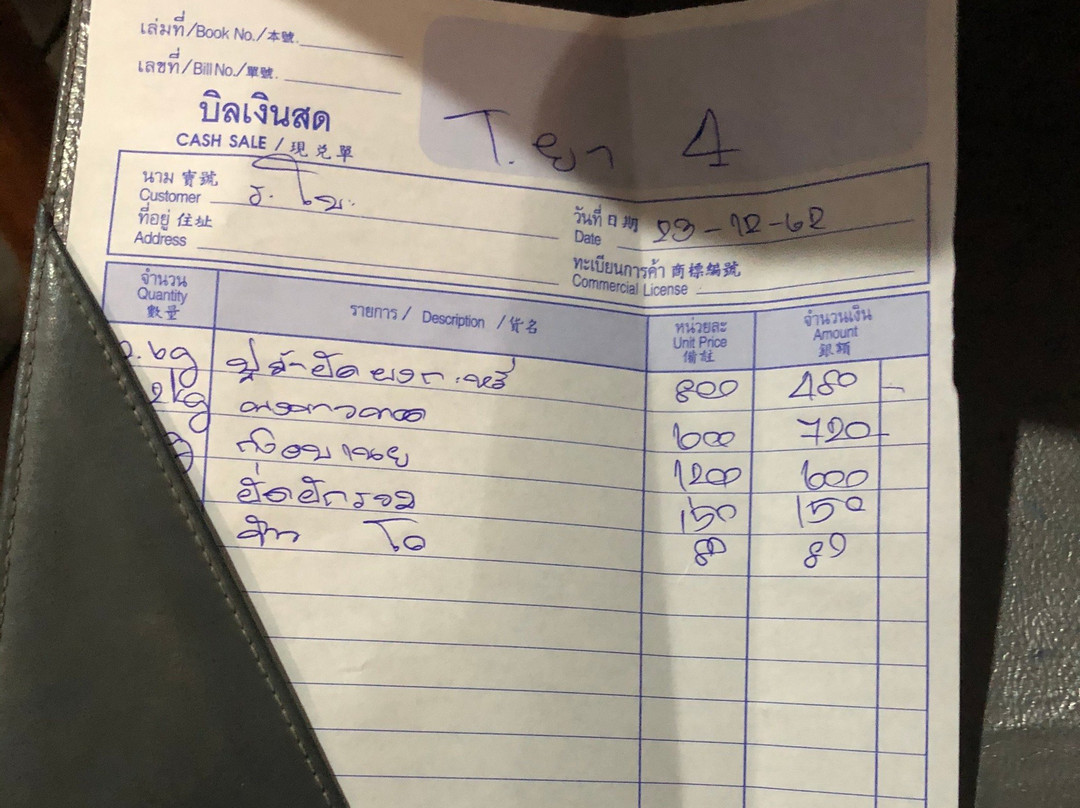 เล่มที่/Book No./本號.
เลขที่/Bill No./單號.
บิลเงินสด
CASH SALE / 現兌單
T. ยา 4
นาม 寶號
Customer
วันที่ 日期
Date 23-12-62
ที่อยู่ 住址
Address
ทะเบียนการค้า 商標編號
Commercial License
จำนวน
Quantity
數量
รายการ / Description / 貨名
หน่วยละ
Unit Price
備註
จำนวนเงิน
Amount
銀額
0.6g 800 480 -
2kg 600 720
1200 600
ผัดผักรวม 150 150
80 80